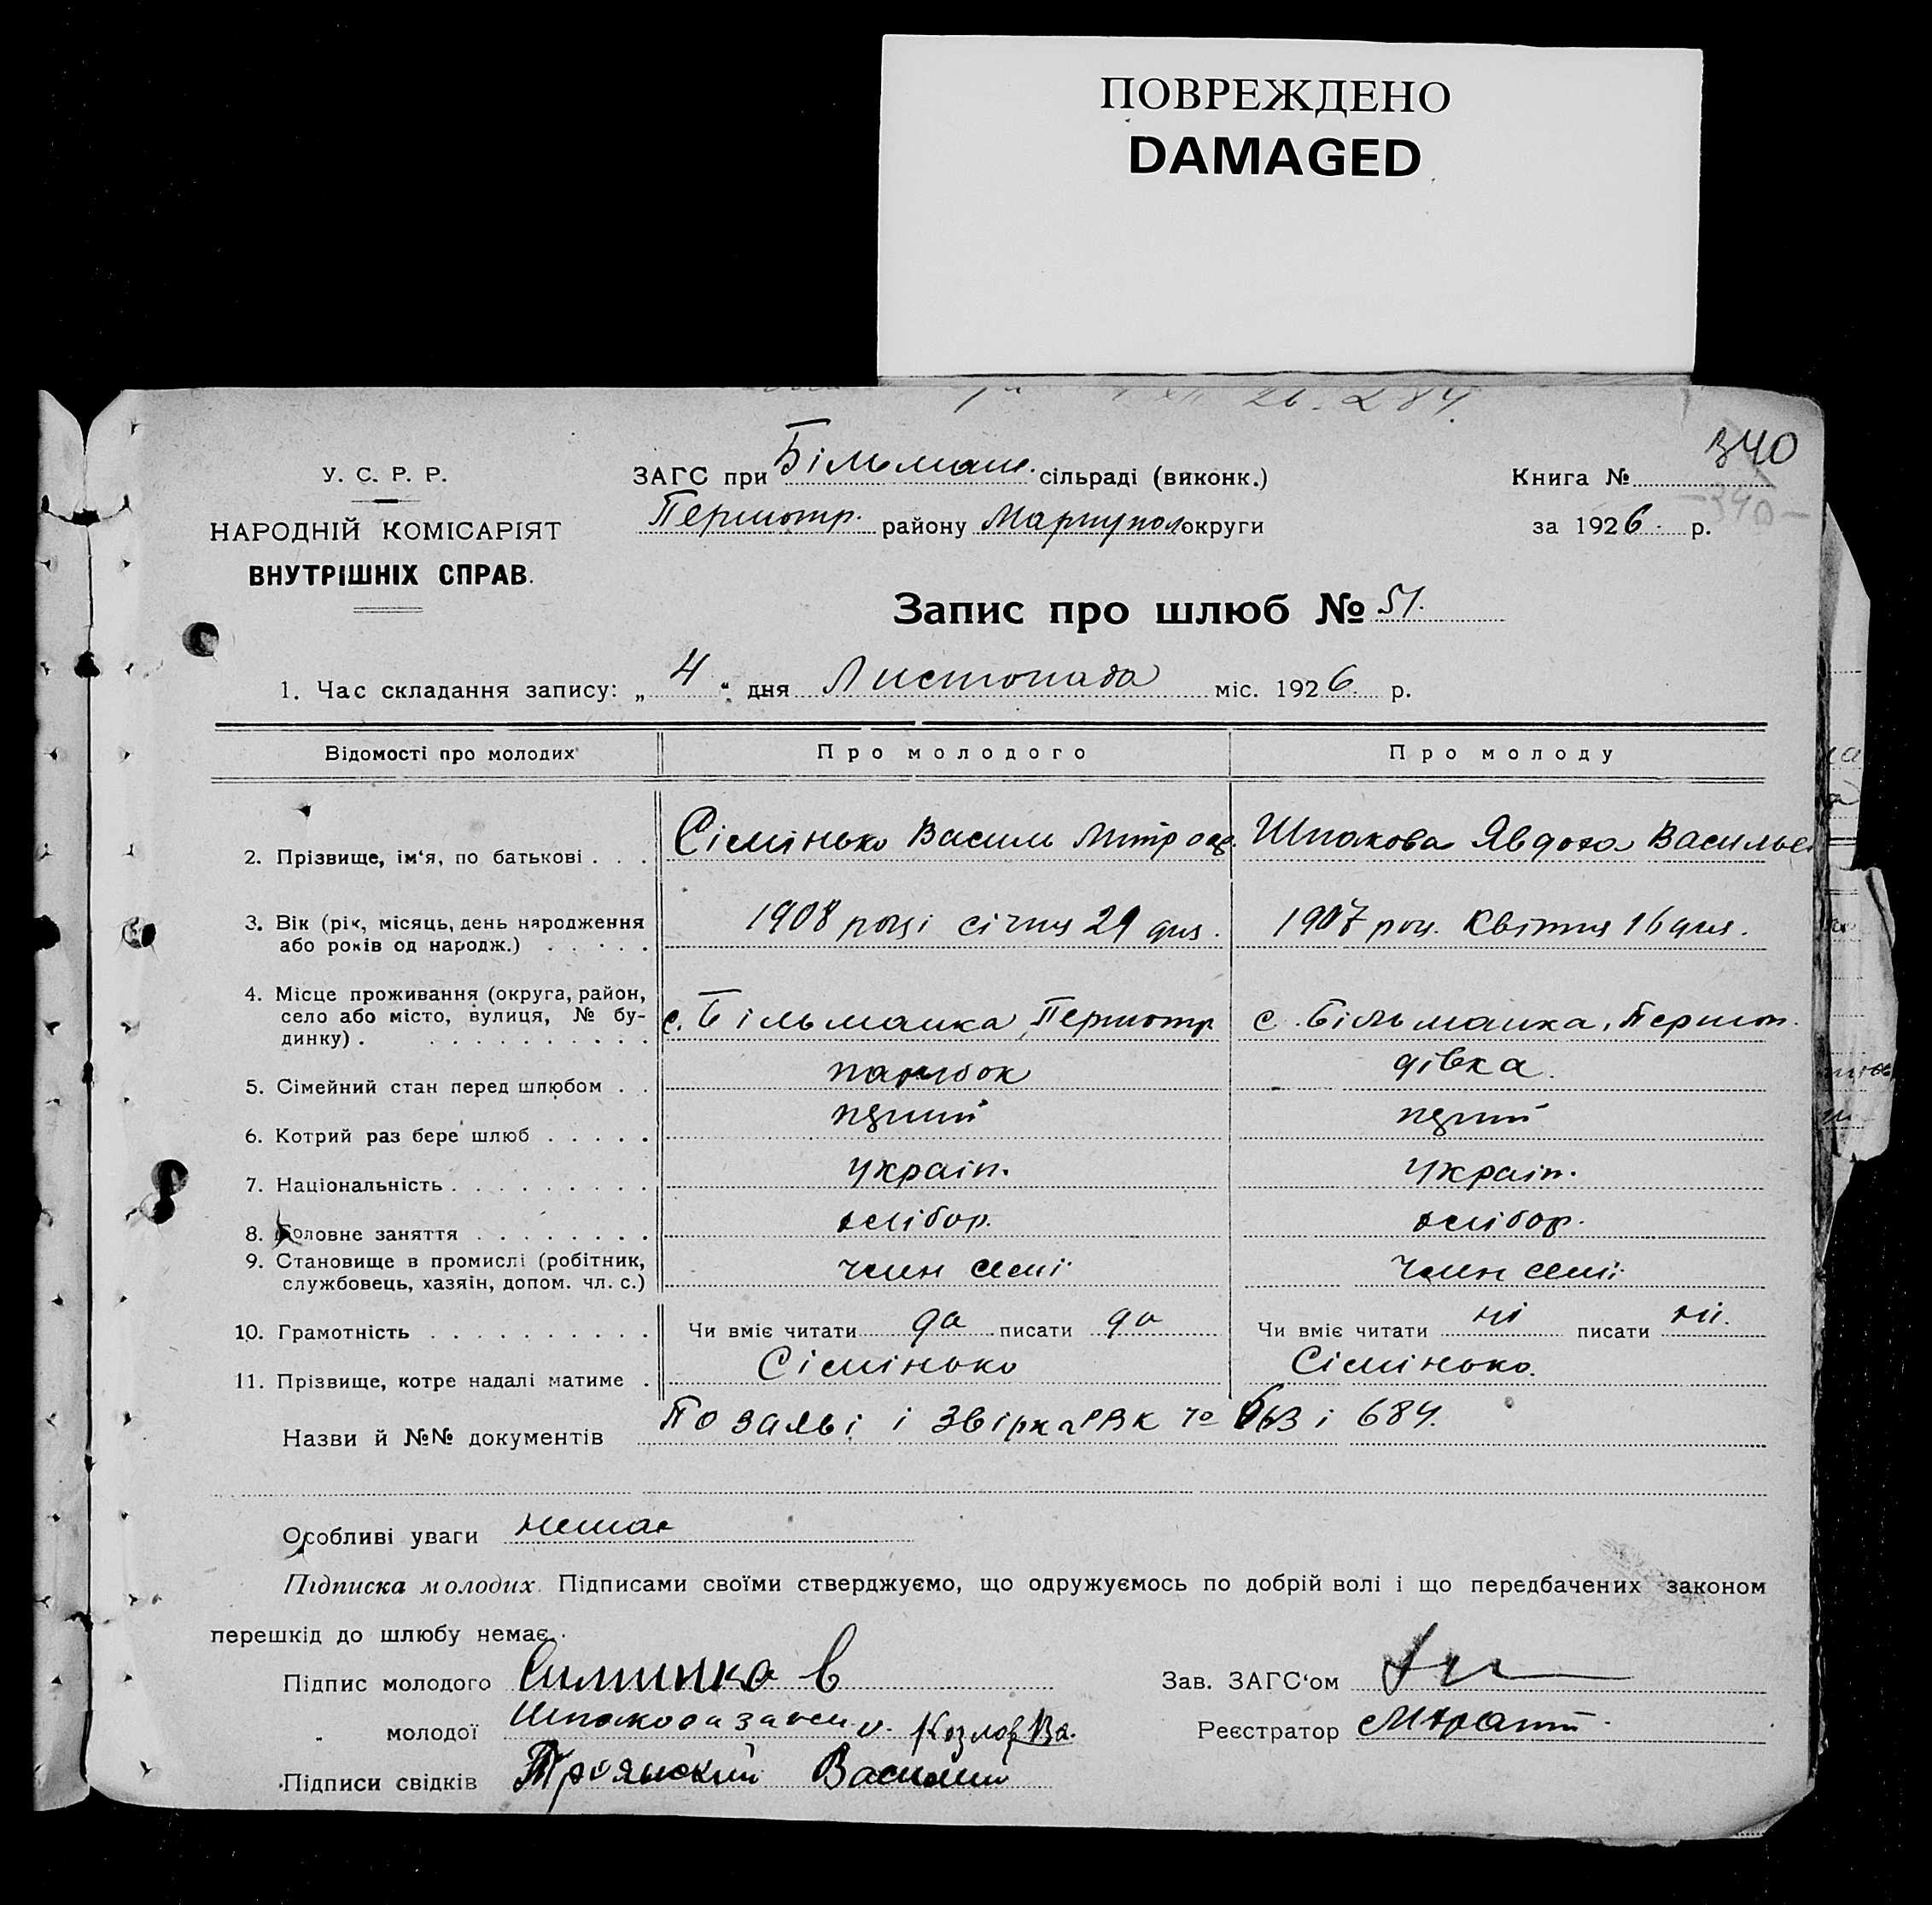 ПОВРЕЖДЕНО
DAMAGED
26. 284.
340
У. С. Р. Р.
ЗАГС при Більман. сільраді (виконк.)
Книга №
— 340 —
НАРОДНІЙ КОМІСАРІЯТ
Першотр. району Маріупол округи
за 1926 р.
ВНУТРІШНІХ СПРАВ.
Запис про шлюб № 51.
1. Час складання запису: „ 4 “ дня Листопада міс. 1926. р.
Відомості про молодих
Про молодого
Про молоду
2. Прізвище, ім‘я, по батькові . . . Сімінько Василь Митроф. Шпакова Явдоха Васильев
3. Вік (рік, місяць, день народження
або років од народж.) . . . . . 1908 році січня 29 дня. 1907 роц. Квітня 16 дня.
4. Місце проживання (округа, район,
село або місто, вулиця, № бу-
динку) . . . . . . . . . . . с. Більманка, Першотр с. Більманка, Першот.
5. Сімейний стан перед шлюбом . . парубок дівка.
6. Котрий раз бере шлюб . . . . . перший перший
7. Національність . . . . . . . . . україн. україн.
8. Головне заняття . . . . . . . . хлібор. хлібор.
9. Становище в промислі (робітник,
службовець, хазяїн, допом. чл. с.) член семі член семі
10. Грамотність . . . . . . . . . . Чи вміє читати да писати да Чи вміє читати ні писати ні.
11. Прізвище, котре надалі матиме . Сімінько Сімінько.
Назви й №№ документів По заяві і звірка РВК 683 і 684.
Особливі уваги немає
Підписка молодих. Підписами своїми стверджуємо, що одружуємось по добрій волі і що передбачених законом
перешкід до шлюбу немає.
Підпис молодого Симинко В
Зав. ЗАГС‘ом
„ молодої Шпакова за неи Козлов Ва.
Реєстратор
Підписи свідків Троянский Василий